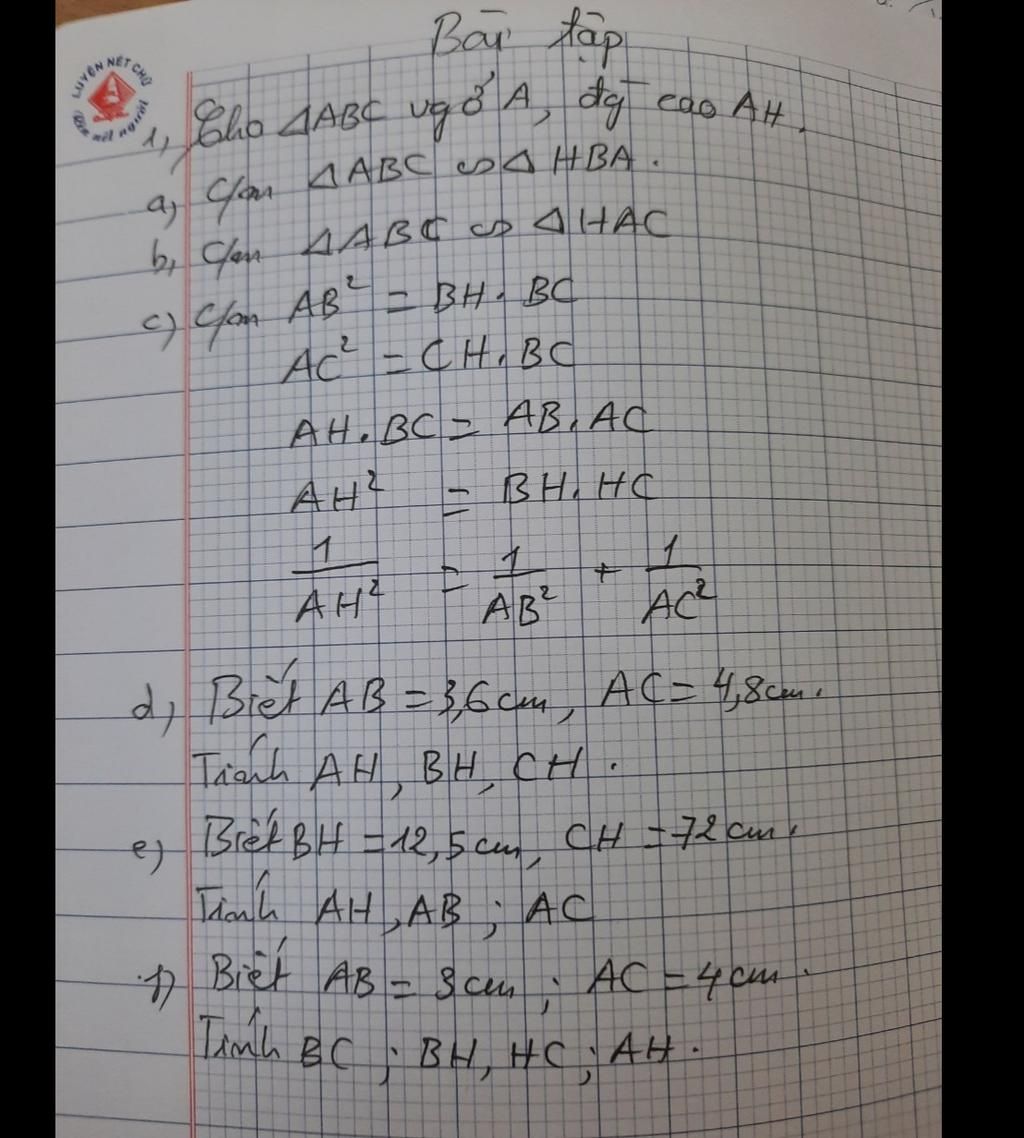 Bài tập
LUYỆN NÉT CHỮ
Rèn nết người
1, Cho △ABC vg ở A, đg cao AH.
a, C/m △ABC ∽ △HBA.
b, C/m △ABC ∽ △HAC
c) C/m AB² = BH. BC
AC² = CH. BC
AH. BC = AB. AC
AH² = BH. HC
1/AH² = 1/AB² + 1/AC²
d) Biết AB = 3,6 cm, AC = 4,8 cm.
Tính AH, BH, CH.
e) Biết BH = 12,5 cm, CH = 72 cm.
Tính AH, AB; AC
f) Biết AB = 3 cm; AC = 4 cm.
Tính BC; BH, HC; AH.